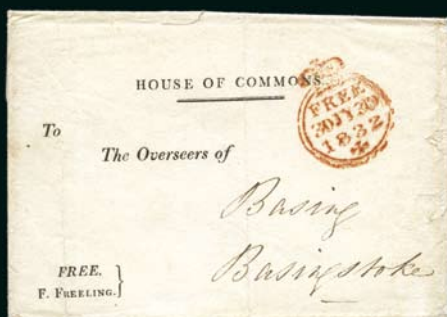 HOUSE OF COMMONS.
FREE
20 JY 20
1832
To
The Overseers of
Basing
Basingstoke
FREE. }
F. FREELING.